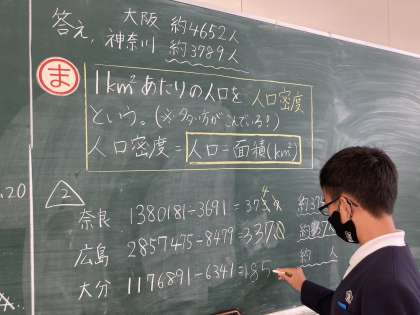 答え、大阪 約4652人
神奈川 約3789人
ま
1km²あたりの人口を人口密度
という。(※多い方がこんでいる!)
人口密度=人口÷面積(km²)
.20
2
奈良 1380181÷3691=37 約37
広島 2857475÷8479=337.0 約
大分 1176891÷6341=185. 約 人